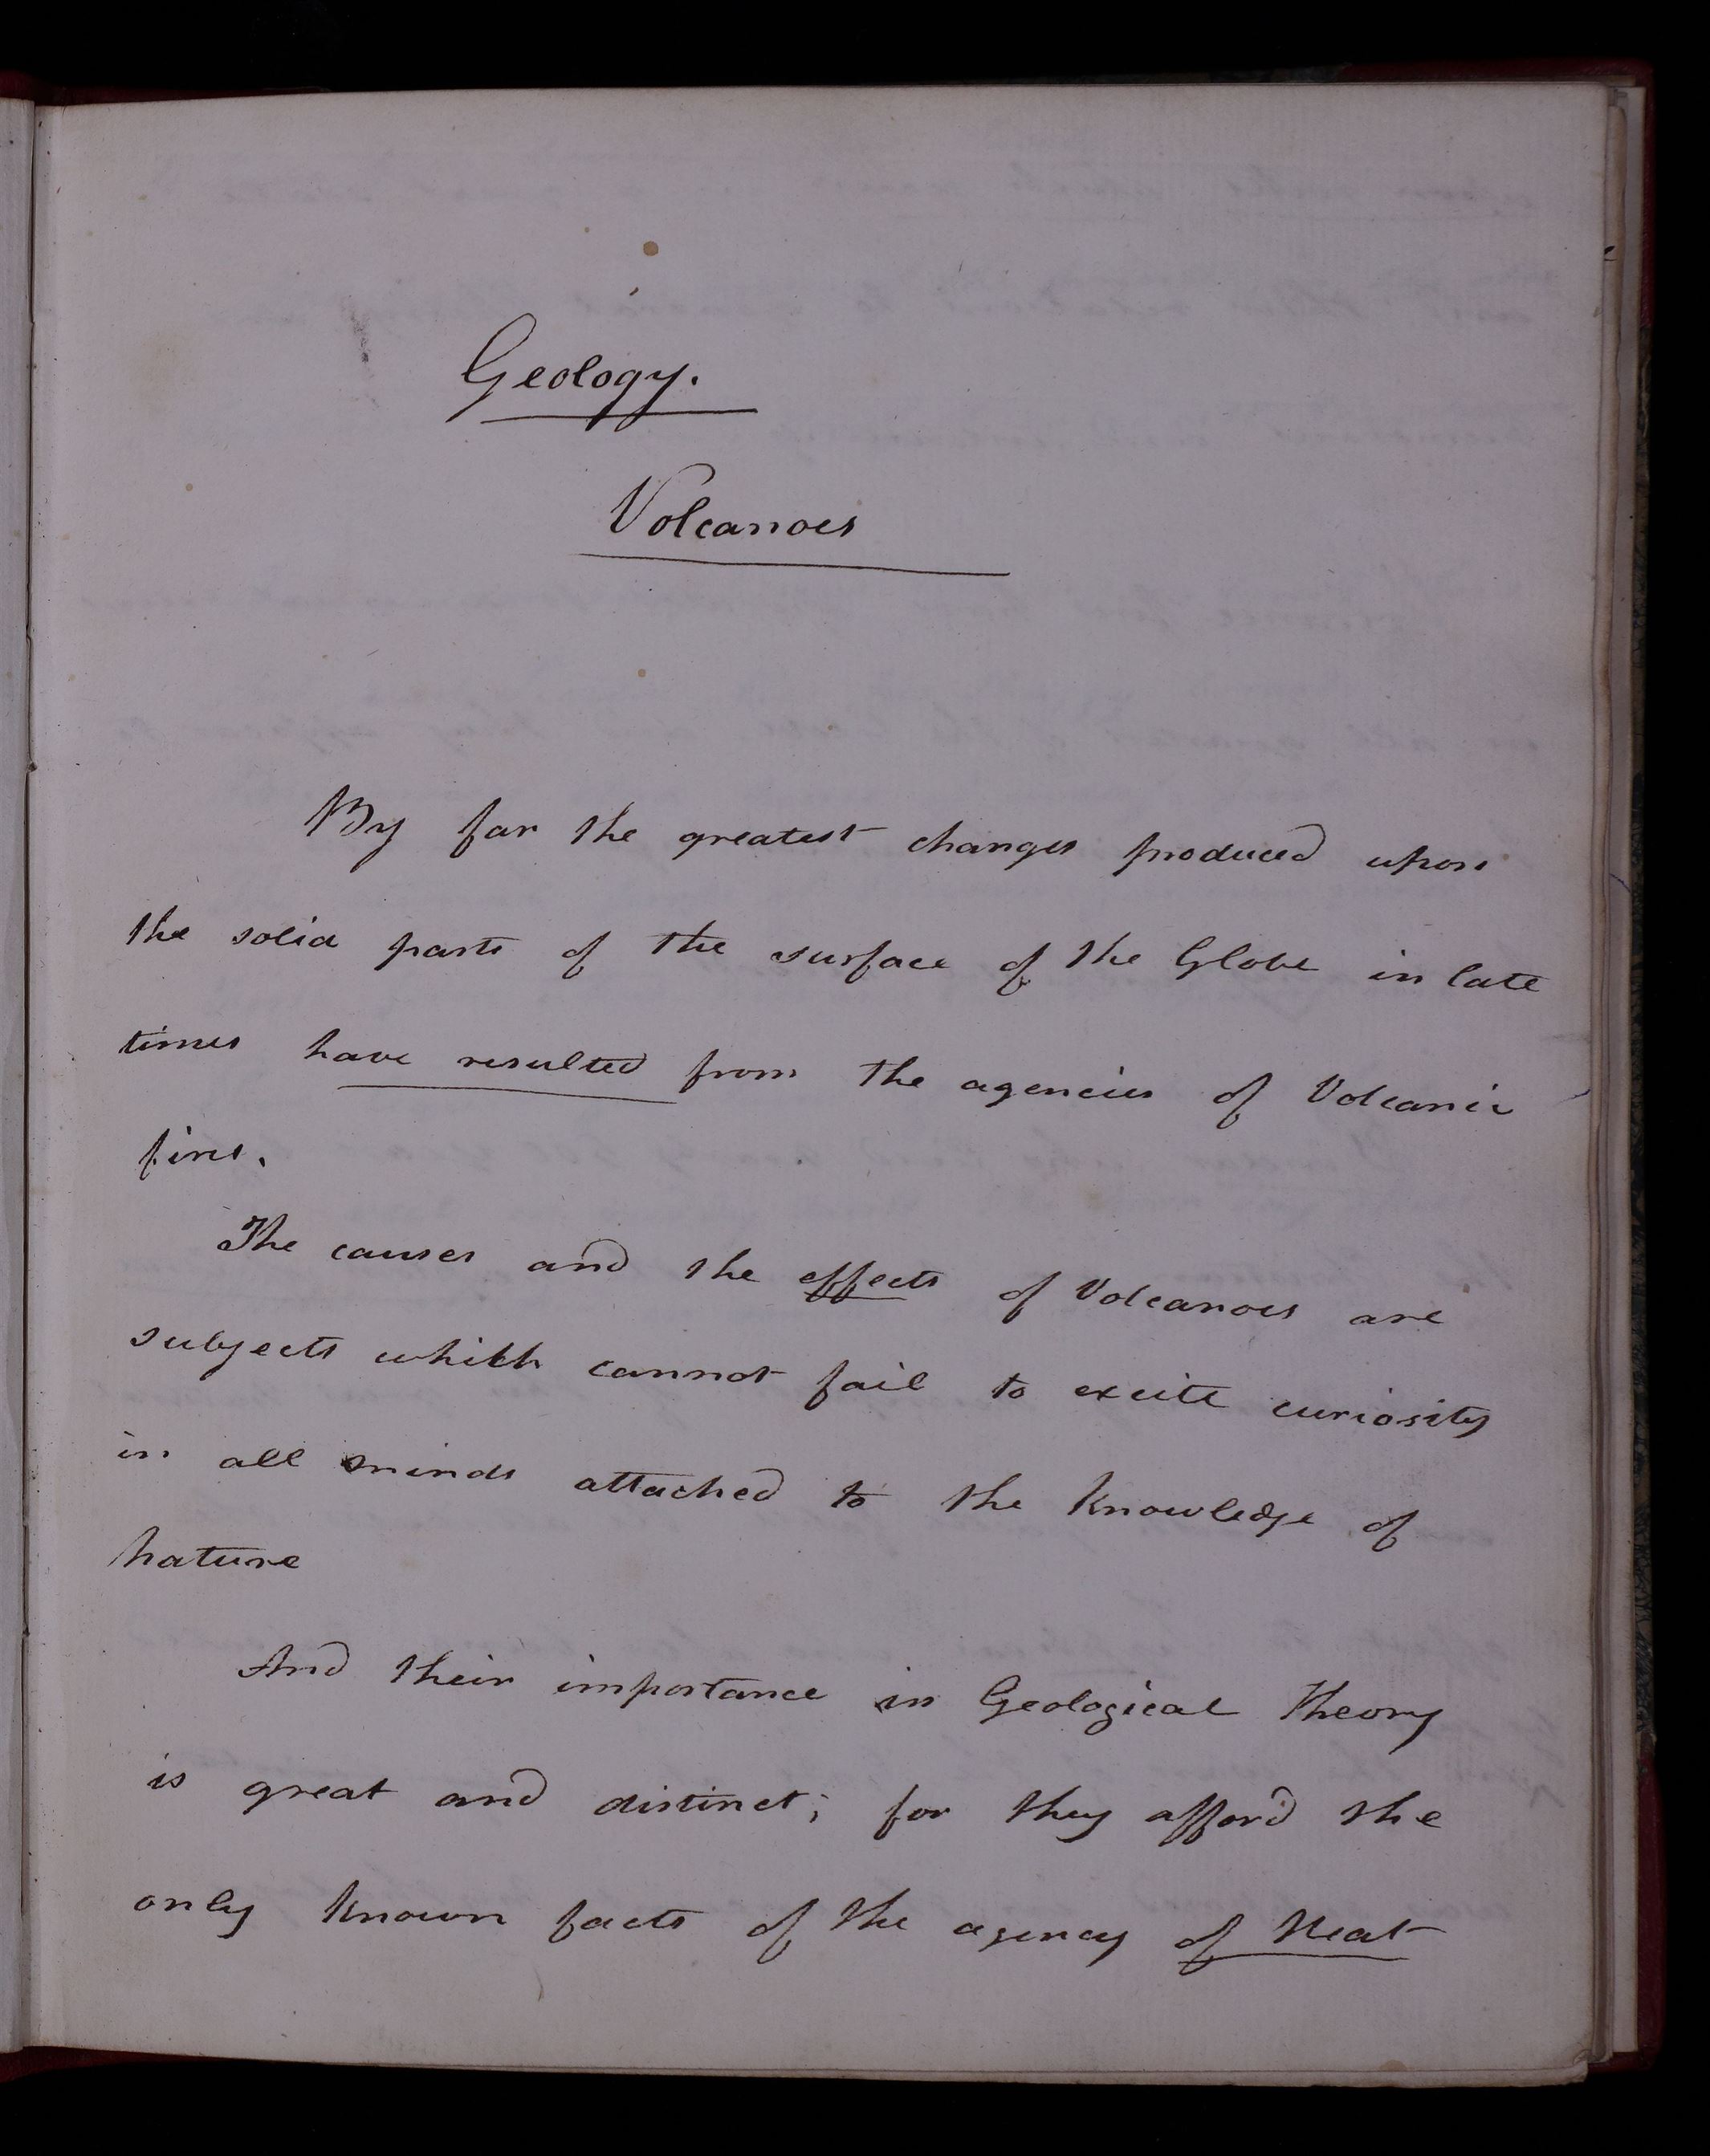 Geology.
Volcanoes
By far the greatest changes produced upon
the solid parts of the surface of the Globe in late
times have resulted from the agencies of Volcanic
fires.
The causes and the effects of Volcanoes are
subjects which cannot fail to excite curiosity
in all minds attached to the Knowledge of
nature
And their importance in Geological Theory
is great and distinct; for they afford the
only known facts of the agency of Heat